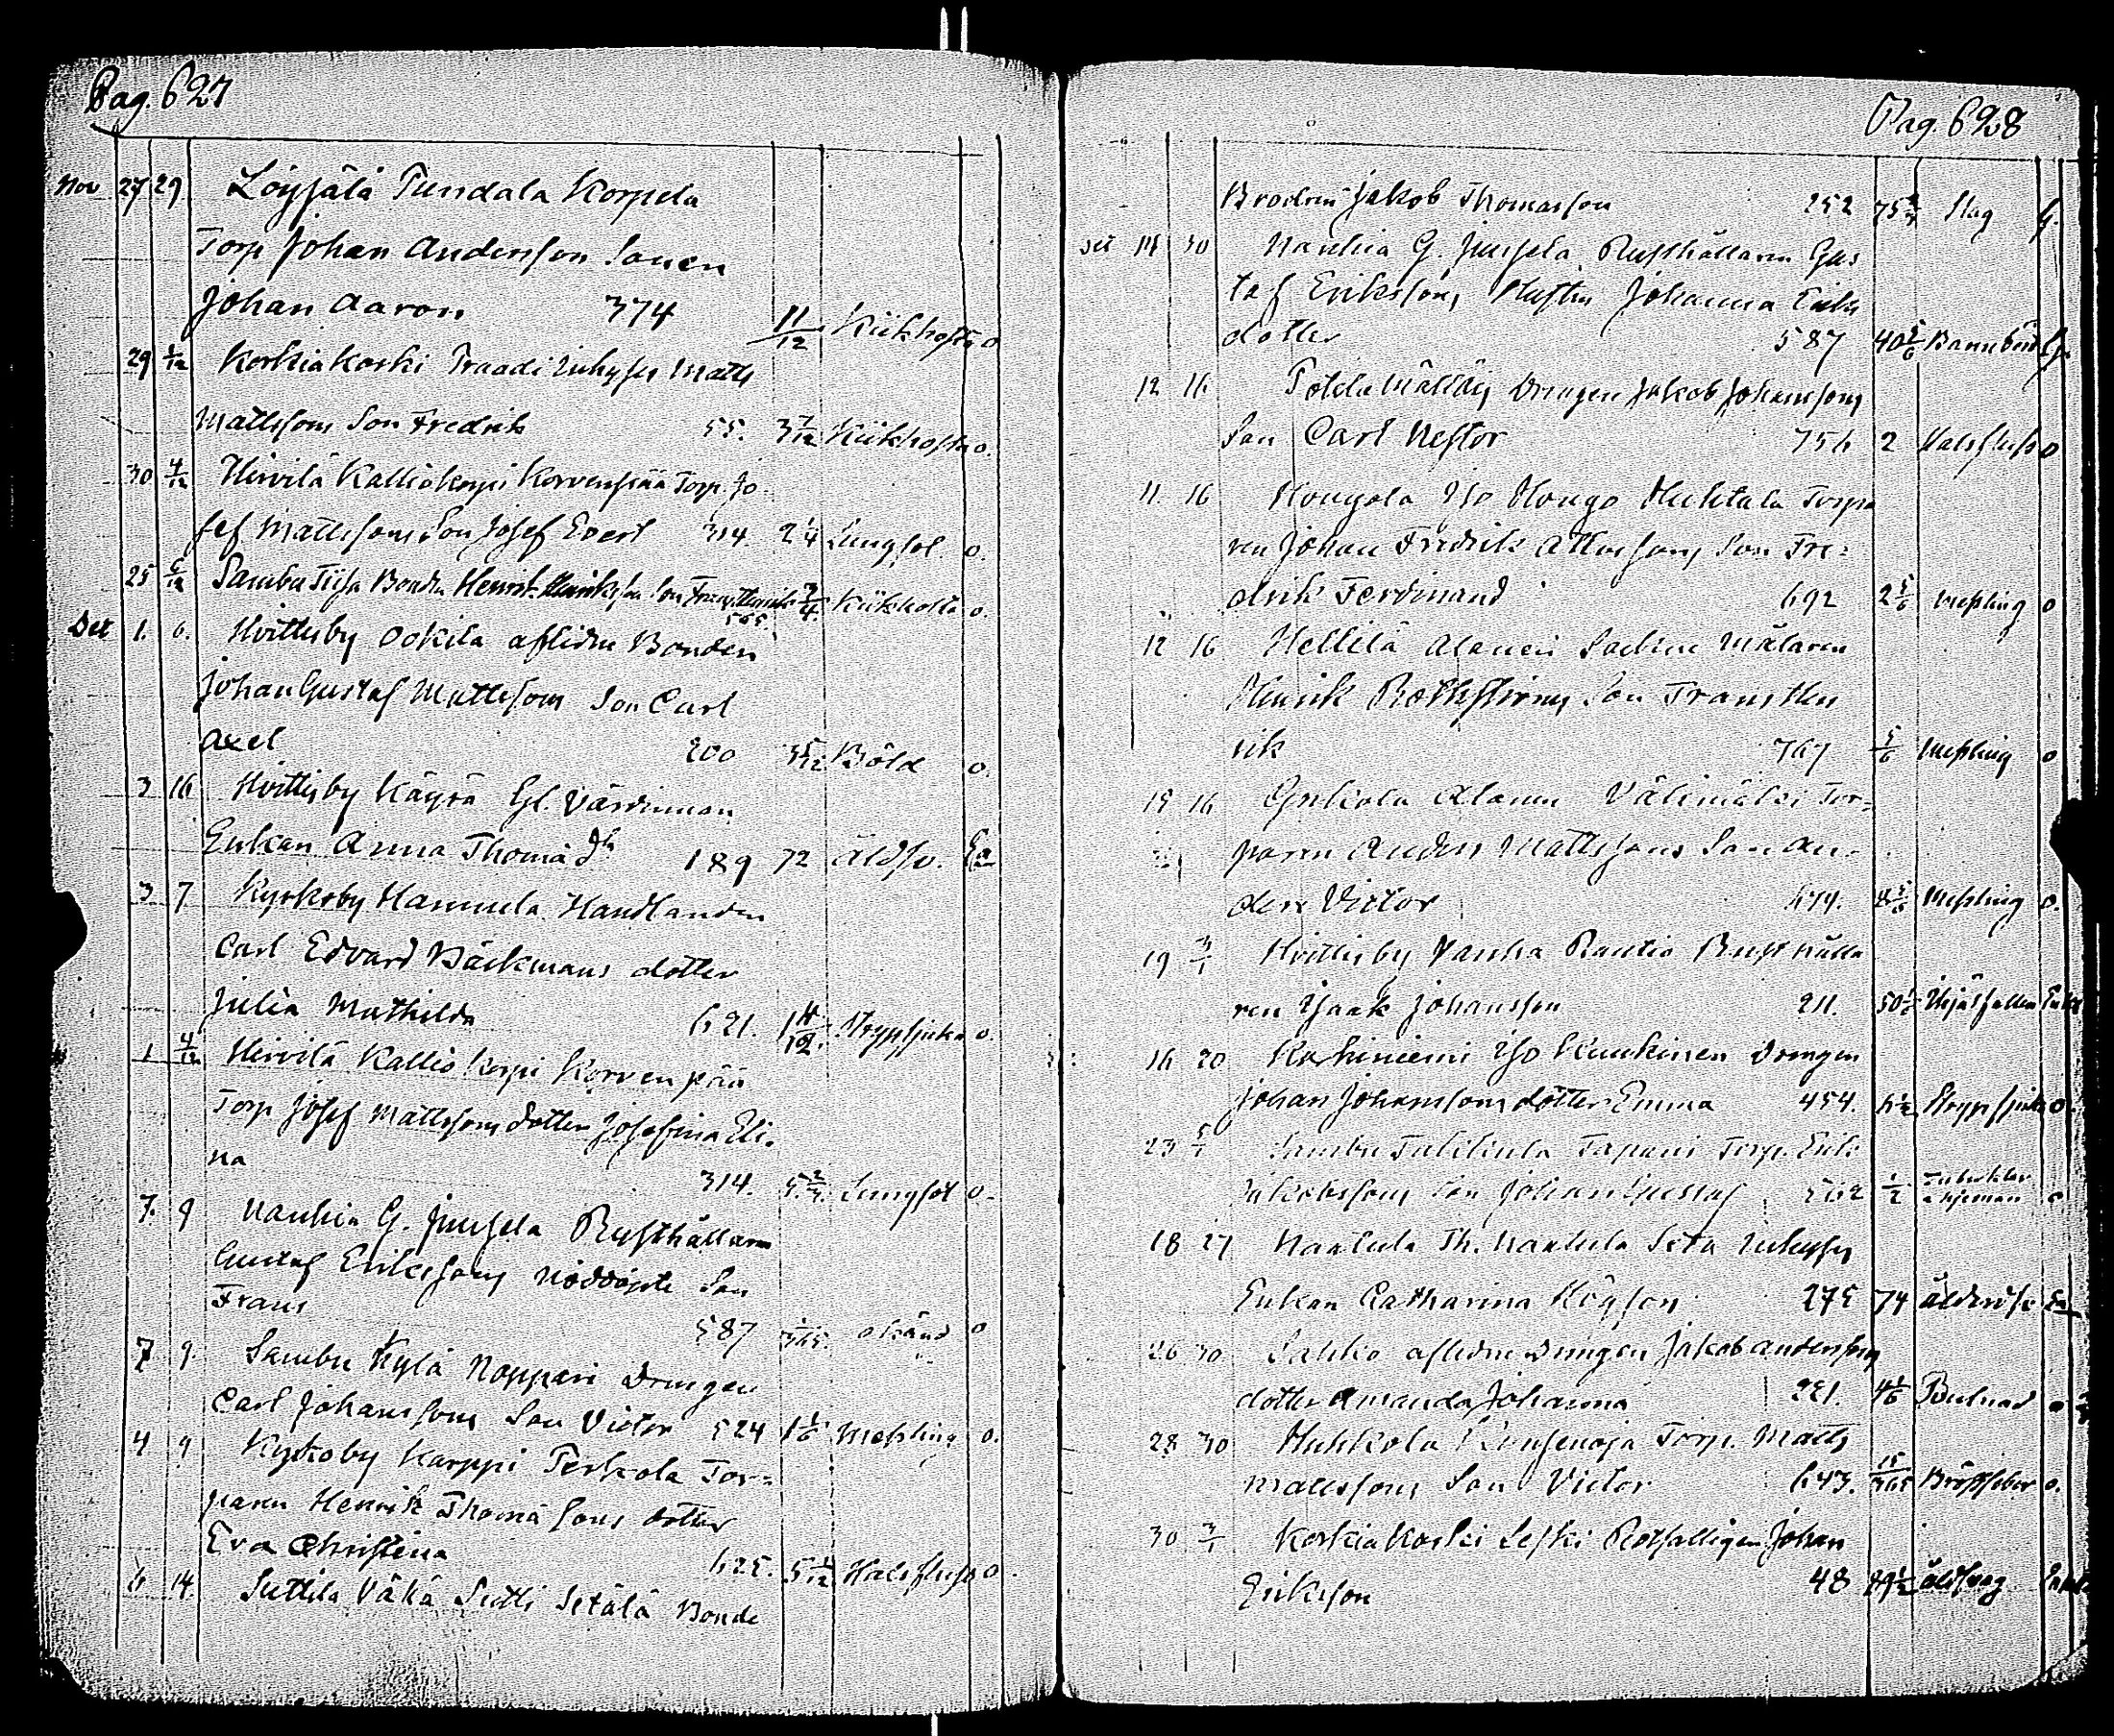 Pag. 627
Nov 27 29 Löyjälä Tundala Korpela
Torp Johan Andersson Sonen
Johan Aaron 374 11/12 Kikhosta o
29 1/12 Korkiakoski Inhyses Matts
Mattssons Son Fredrik 55. 3 7/12 Kikhosta o.
30 4/12 Hirvilä Kalliokorpi Korvenpää Torp. Jo-
sef Mattssons Son Josef Evert 314. 2 1/4 Lungsot. o.
25 6/12 Sambu Bonden Henrik Henrikssons Son Frans Henrik 565. 3/4 Kikhosta o.
Dec 1. 6. Hvittisby Ookila aflidne Bonden
Johan Gustaf Mattssons Son Carl
Axel 200 Böld o.
3 16 Hvittisby Käyrä Gl. Värdinnan
Enkan Anna Thomä dr 189 72 Åldsv. Ea
3 7 Kyrkoby Hannula Handlanden
Carl Edvard Bäckmans dotter
Julia Mathilda 621. 1 11/12. Strypsjuka o.
1 4/12 Hirvilä Kalliokorpi Korvenpää
Torp Josef Mattssons dotter Josefina Eli-
na 314. 5 2/3. Lungsot o.
7. 9 Naukia G. Junsela Rusthållaren
Gustaf Erikssons Nöddöpte Son
Frans 587 1/365. okänd o
7 9. Sambu Kylä Noppari Drengen
Carl Johanssons Son Victor 524 1 1/6 Messling o.
4 9 Kyrkoby Karppi Perkola Tor-
paren Henrik Thomä Sons dotter
Eva Christina 625. 5 1/12 Halsfluss o.
6 14. Suttila Väkä Sutti Setälä Bonde
Pag. 628
Brodren Jakob Thomasson 252 Slag G.
Dec 30 Naukia G. Junsela Rusthållaren Gus-
taf Erikssons Hustru Johanna Eriks
dotter 587 40 5/6 Barnbörd G.
12 16 Drengen Jakob Johanssons
Son Carl Nestor 756 2 Halsfluss o
11. 16 Hougola Iso Hougo Huhtala Torpa
ren Johan Fredrik Son Fre-
drik Ferdinand 692 2 5/6 Messling o
12 16 Hellilä Alanen Målaren
Henrik Son Frans Hen
rik 767 5/6 Messling o
19 16 Alanen Välimäki Tor-
paren Anders Mattssons Son An-
ders Victor 674. Messling o.
19 3/1 Hvittisby Vanha Rautio Rusthålla
ren Isaak Johansson 211. 50 Enkl
16 20 Karhiniemi Iso Kuukinen Drengen
Johan Johanssons dotter Emma 454. 6 1/2 Strypsjuka o.
23 5/1 Sambu Tapani Torp. Erik
Jakobssons Son Johan Gustaf 562 1/2 o
18 27 Nantula Th. Nantula Seta Inhyses
Enkan Catharina Högfors 275 74 ålderdsv En
26 30 Sahko aflidne Drengen Jakob Anderssons
dotter Amanda Johanna 221. 4 1/6 Bulnad o
28 30 Huhkola Torp. Matts
Mattssons Son Victor 643. 15/365 Bröstfeber o.
30 3/1 Korkiakoski Leski Rotfattigen Johan
Eriksson 48 Åldsvag Enkl